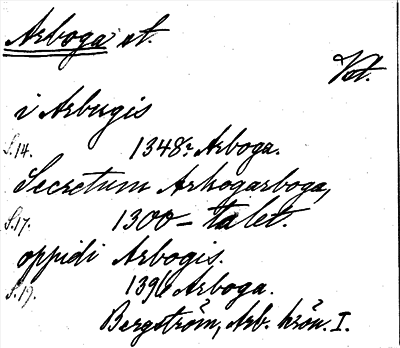 Arboga st.
Vst.
i Arbugis
S. 14. 1348 Arboga.
Secretum Arhogarboga,
S. 17. 1300-talet.
oppidi Arbogis.
S. 19. Arboga.
Bergström, Arb. krön. I.